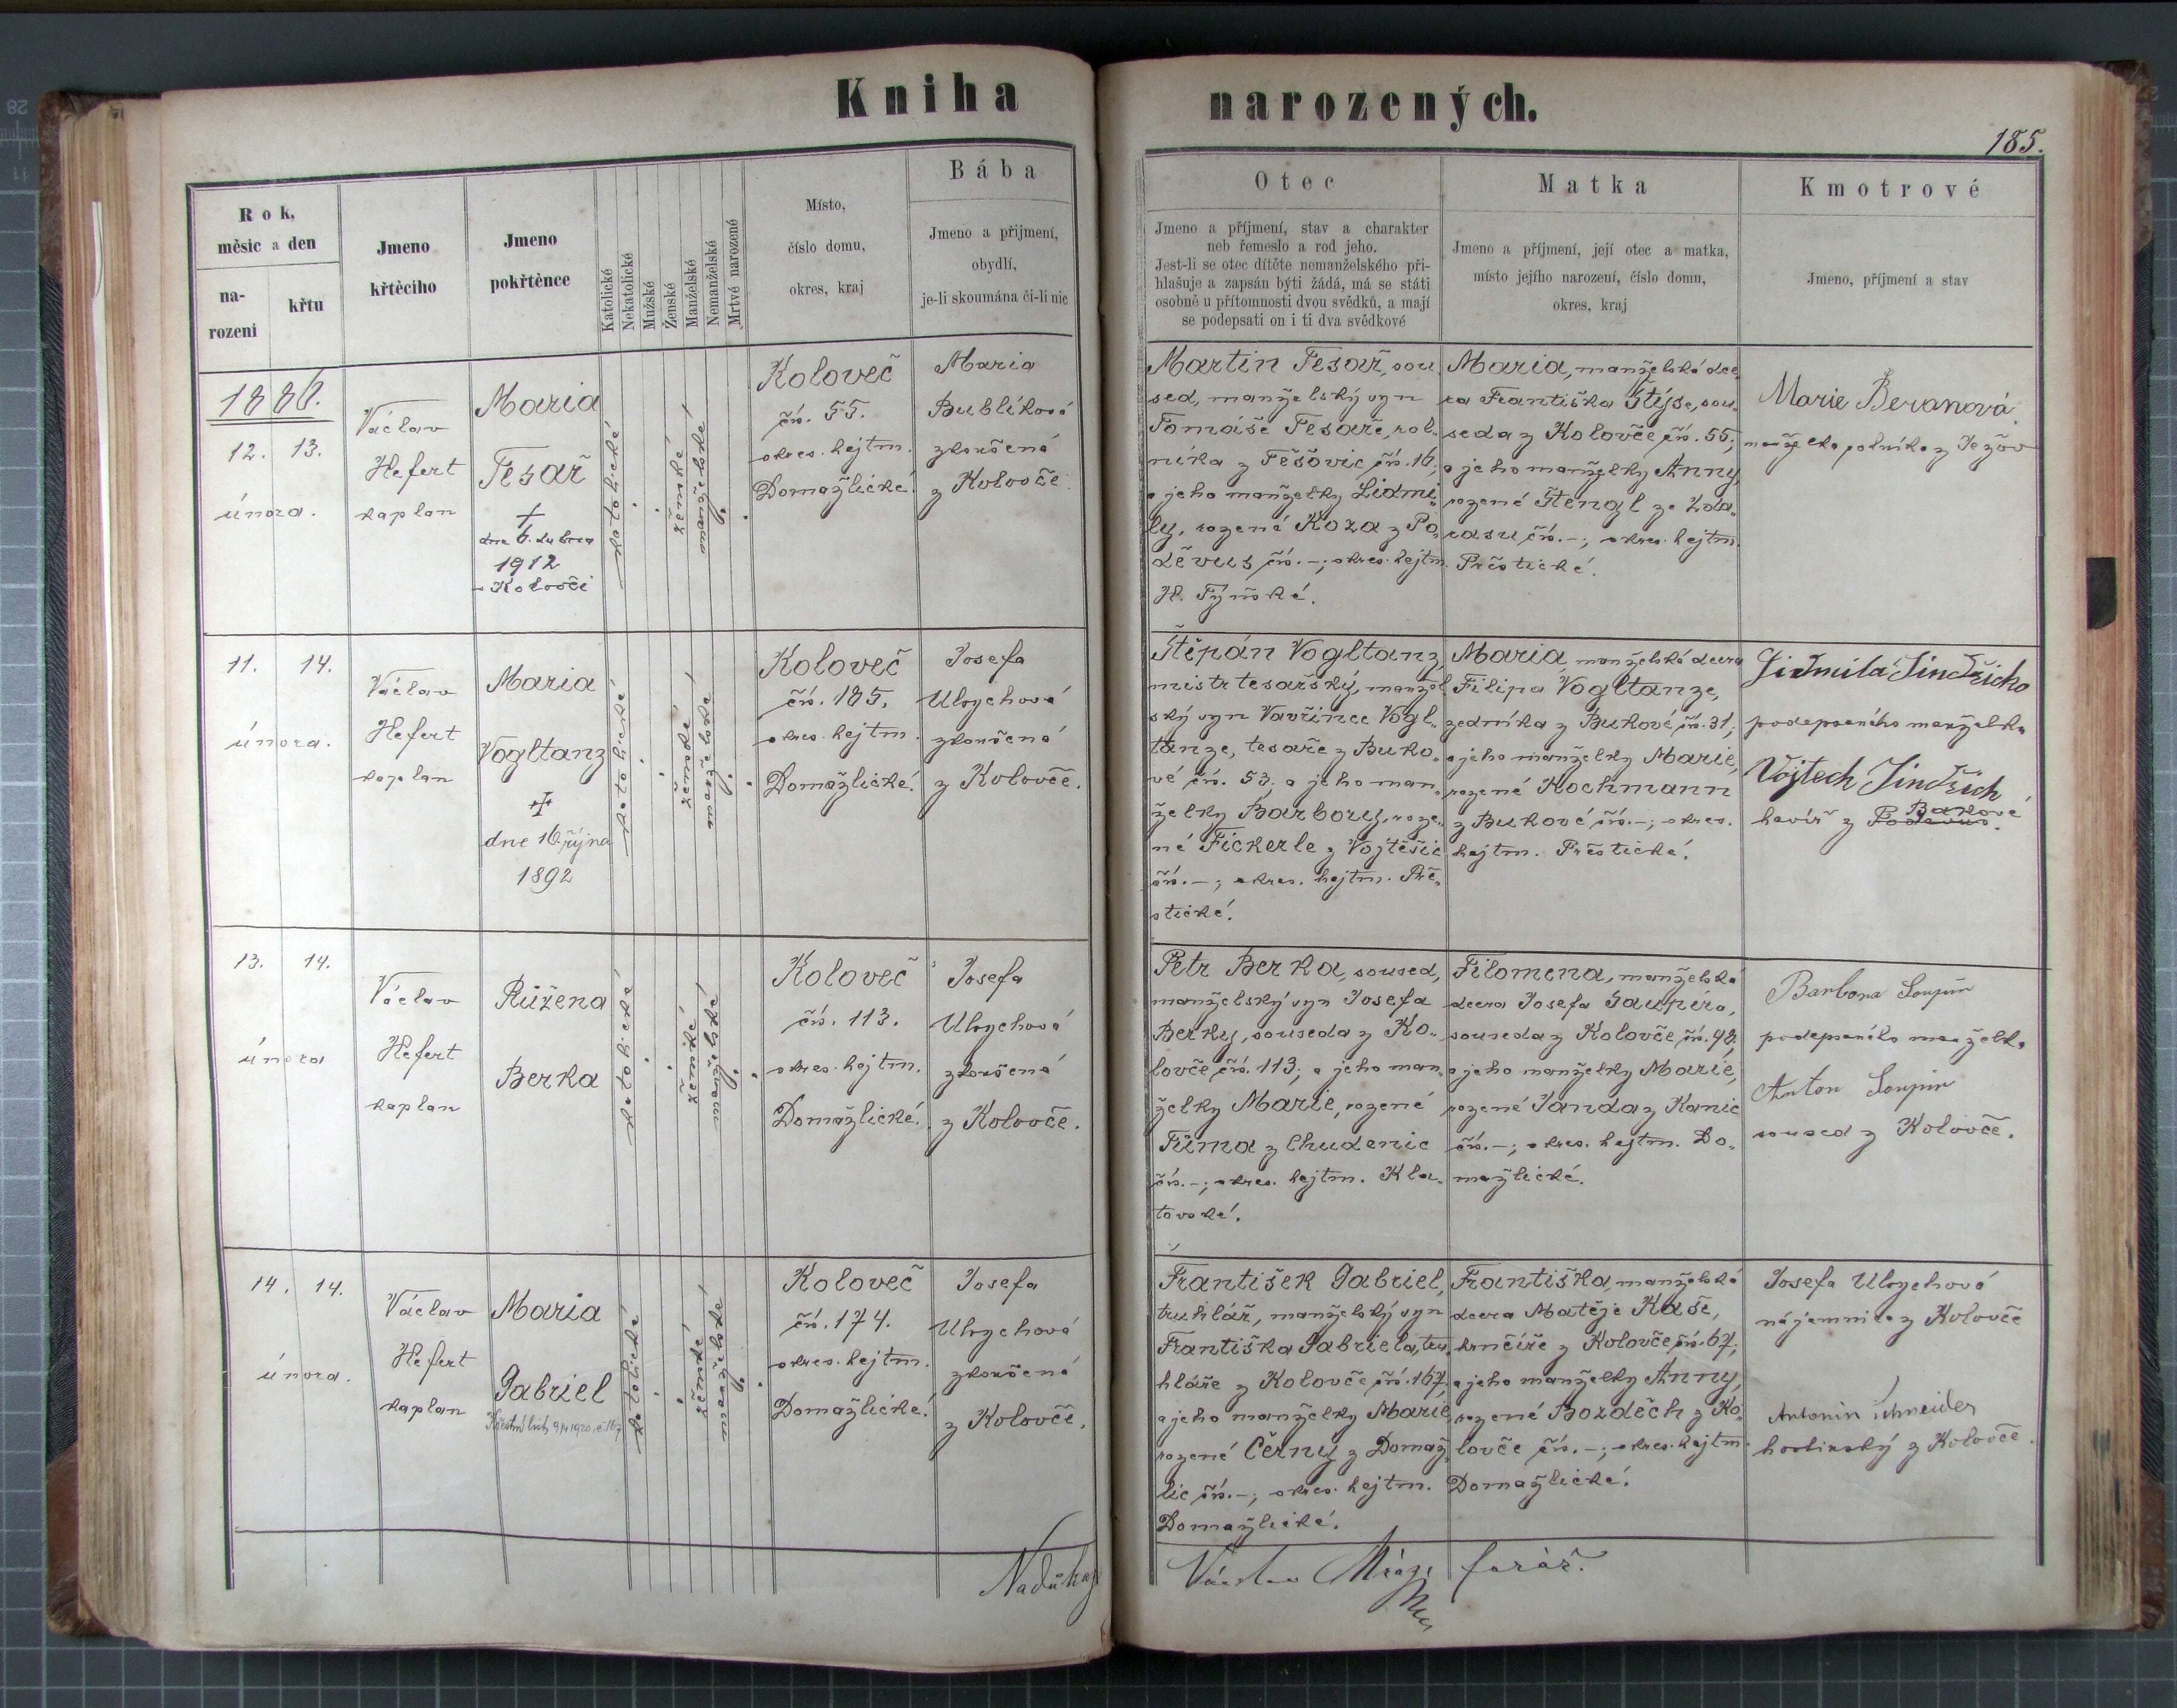 Kniha
narozených.
185.
Rok,
měsíc a den
na-
rození
křtu
Jmeno
křtěcího
Jmeno
pokřtěnce
Katolické
Nekatolické
Mužské
Ženské
Manželské
Nemanželské
Mrtvě narozené
Místo,
číslo domu,
okres, kraj
Bába
Jmeno a přijmení,
obydlí,
je-li skoumána či-li nic
Otec
Jmeno a příjmení, stav a charakter
neb řemeslo a rod jeho.
Jest-li se otec dítěte nemanželského při-
hlašuje a zapsán býti žádá, má se státi
osobně u přítomnosti dvou svědků, a mají
se podepsati on i ti dva svědkové
Matka
Jmeno a příjmení, její otec a matka,
místo jejího narození, číslo domu,
okres, kraj
Kmotrové
Jmeno, příjmení a stav
1886.
12. 13.
února.
Václav
Hefert
kaplan
Maria
Tesař
+
dne 6. dubna
1912
v Kolovči
katolické
ženské
manželské
Koloveč
čís. 55.
okres. hejtm.
Domažlické.
Maria
Bublíková
zkoušená
z Kolovče
Martin Tesař, sou
sed, manželský syn
Tomáše Tesaře, rol-
níka z Těšovic čís. 16;
a jeho manželky Lidmi-
ly, rozené Koza z Po-
děvus čís. -; okres. hejtm.
H. Týnské.
Maria, manželská dce-
ra Františka Štýse, sou-
seda z Kolovče čís. 55;
a jeho manželky Anny,
rozené Štengl ze Zda-
rasu čís. -; okres. hejtm.
Přestické.
Marie Beranová
manželka rolníka z Ježov
11. 14.
února.
Václav
Hefert
kaplan
Maria
Vogltanz
+
dne 16. října
1892
katolické
ženské
manželské
Koloveč
čís. 185.
okres. hejtm.
Domažlické.
Josefa
Ulrychová
zkoušená
z Kolovče.
Štěpán Vogltanz,
mistr tesařský, manžel
ský syn Vavřince Vogl-
tanze, tesaře z Buko-
vé čís. 53; a jeho man-
želky Barbory, roze-
né Fickerle z Vojtěšic
čís. -; okres. hejtm. Pře-
stické.
Maria, manželská dcera
Filipa Vogltanze,
zedníka z Bukové čís. 31;
a jeho manželky Marie,
rozené Kochmann
z Bukové čís. -; okres.
hejtm. Přestické.
Lidmila Jindřicho
podepsaného manželka
Vojtech Jindřich
Bukové
havíř z Poděvus.
13. 14.
února
Václav
Hefert
kaplan
Růžena
Berka
katolické
ženské
manželské
Koloveč
čís. 113.
okres. hejtm.
Domažlické.
Josefa
Ulrychová
zkoušená
z Kolovče.
Petr Berka, soused,
manželský syn Josefa
Berky, souseda z Ko-
lovče čís. 113; a jeho man-
želky Marie, rozené
Tůma z Chudenic
čís. -; okres. hejtm. Kla-
tovské.
Filomena, manželská
dcera Josefa Saupíra,
souseda z Kolovče čís. 98;
a jeho manželky Marie,
rozené Janda z Kanic
čís. -; okres. hejtm. Do-
mažlické.
Barbora Soupír
podepsaného manželka
Anton Soupir
soused z Kolovče.
14. 14.
února.
Václav
Hefert
kaplan
Maria
Gabriel
Křestní list
katolické
ženské
manželské
Koloveč
čís. 174.
okres. hejtm.
Domažlické.
Josefa
Ulrychová
zkoušená
z Kolovče.
František Gabriel,
truhlář, manželský syn
Františka Gabriela, tru-
hláře z Kolovče čís. 167;
a jeho manželky Marie,
rozené Černy z Domaž-
lic čís. -; okres. hejtm.
Domažlické.
Františka, manželská
dcera Matěje Kaše,
hrnčíře z Kolovče čís. 67;
a jeho manželky Anny,
rozené Bozděch z Ko-
lovče čís. -; okres. hejtm.
Domažlické.
Josefa Ulrychová
nájemnice z Kolovče
Antonín Schneider
hostinský z Kolovče.
Václav farář.